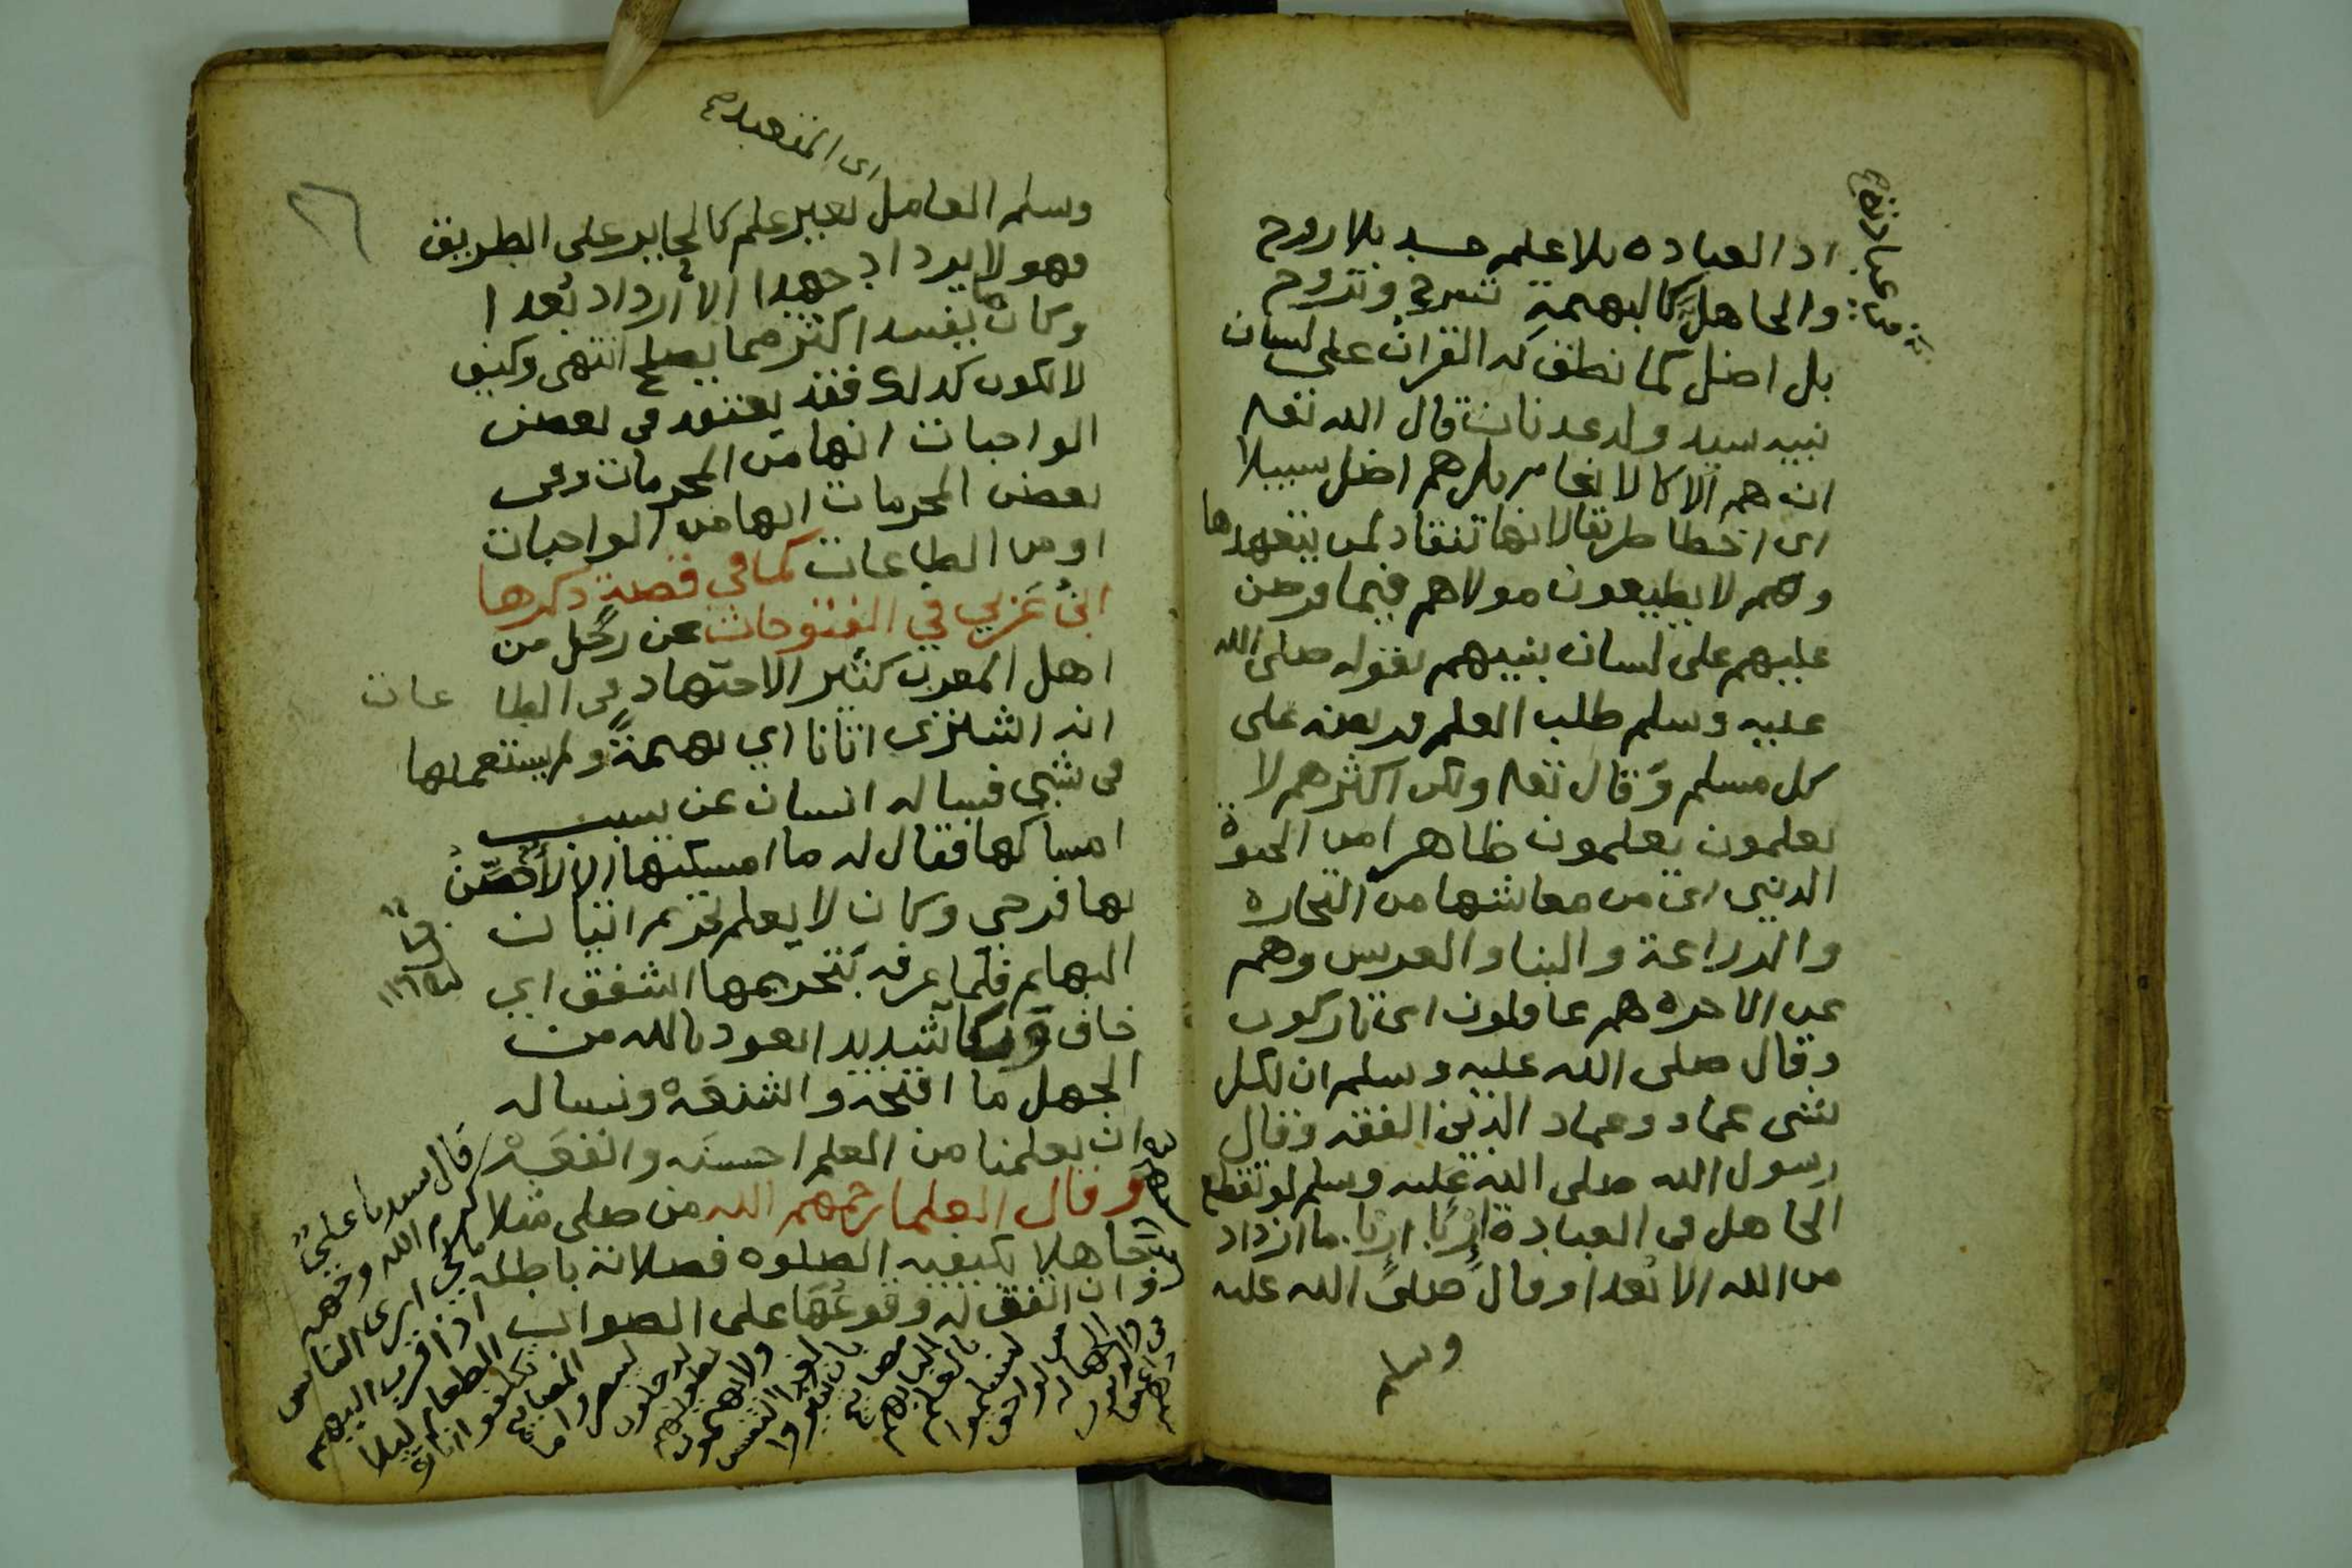 اد العباده بلا علم جسد بلا روح
والجاهل كالبهيمة تسرح وتروح
بل اضل كما نطق به القران على لسان
نبيه سيد ولد عدنان قال الله تعا
ان هم الا كالانعام بل هم اضل سبيلا
اى اخطا طريقا لانها تنقاد لمن يتعهدها
وهم لا يطيعون مولاهم فيما فرض
عليهم على لسان نبيهم بقوله صلى الله
عليه وسلم طلب العلم فريضه على
كل مسلم وقال تعا ولكن اكثرهم لا
يعلمون يعلمون ظاهرا من الحيوة
الدنيى اى من معاشها من التجاره
والزراعة والبنا والغرس وهم
عن الاخره هم غافلون اى تاركون
وقال صلى الله عليه وسلم ان لكل
شى عماد وعماد الدين الفقه وقال
رسول الله صلى الله عليه وسلم لو تقطع
الجاهل فى العبادة اربا اربا ما ازداد
من الله الا بعدا وقال صلى الله عليه
وسلم
وسلم العامل بغير علم كالجاير على الطريق
فهو لا يزداد جهدا الا ازداد بعدا
وكان ما يفسد اكثر مما يصلح انتهى وكيف
لا يكون كذلك فقد يعتقد فى بعض
الواجبات انها من المحرمات وفى
بعض المحرمات انها من الواجبات
او من الطاعات كما في قصة ذكرها
ابن عربي في الفتوحات عن رجل من
اهل المغرب كثير الاجتهاد فى الطاعات
انه اشترى اتانا اي بهيمة ولم يستعملها
فى شي فساله انسان عن سبب
امساكها فقال له ما امسكتها الا لاحصن
بها فرجي وكان لا يعلم تحريم اتيان
البهايم فلما عرفه بتحريمها اشفق اي
خاف وبكا شديد انعوذ بالله من
الجهل ما اقبحه واشنعه ونساله
ان يعلمنا من العلم احسنه وانفعه
وقال العلما رحمهم الله من صلى مثلا
جاهلا بكيفيه الصلوه فصلاته باطله
وان اتفق له وقوعها على الصواب
قال سيدنا علي
كرم الله وجهه
مالي ارى الناس
اذا قرب اليهم
الطعام ليلا
تكلفوا انارة
المصابيح